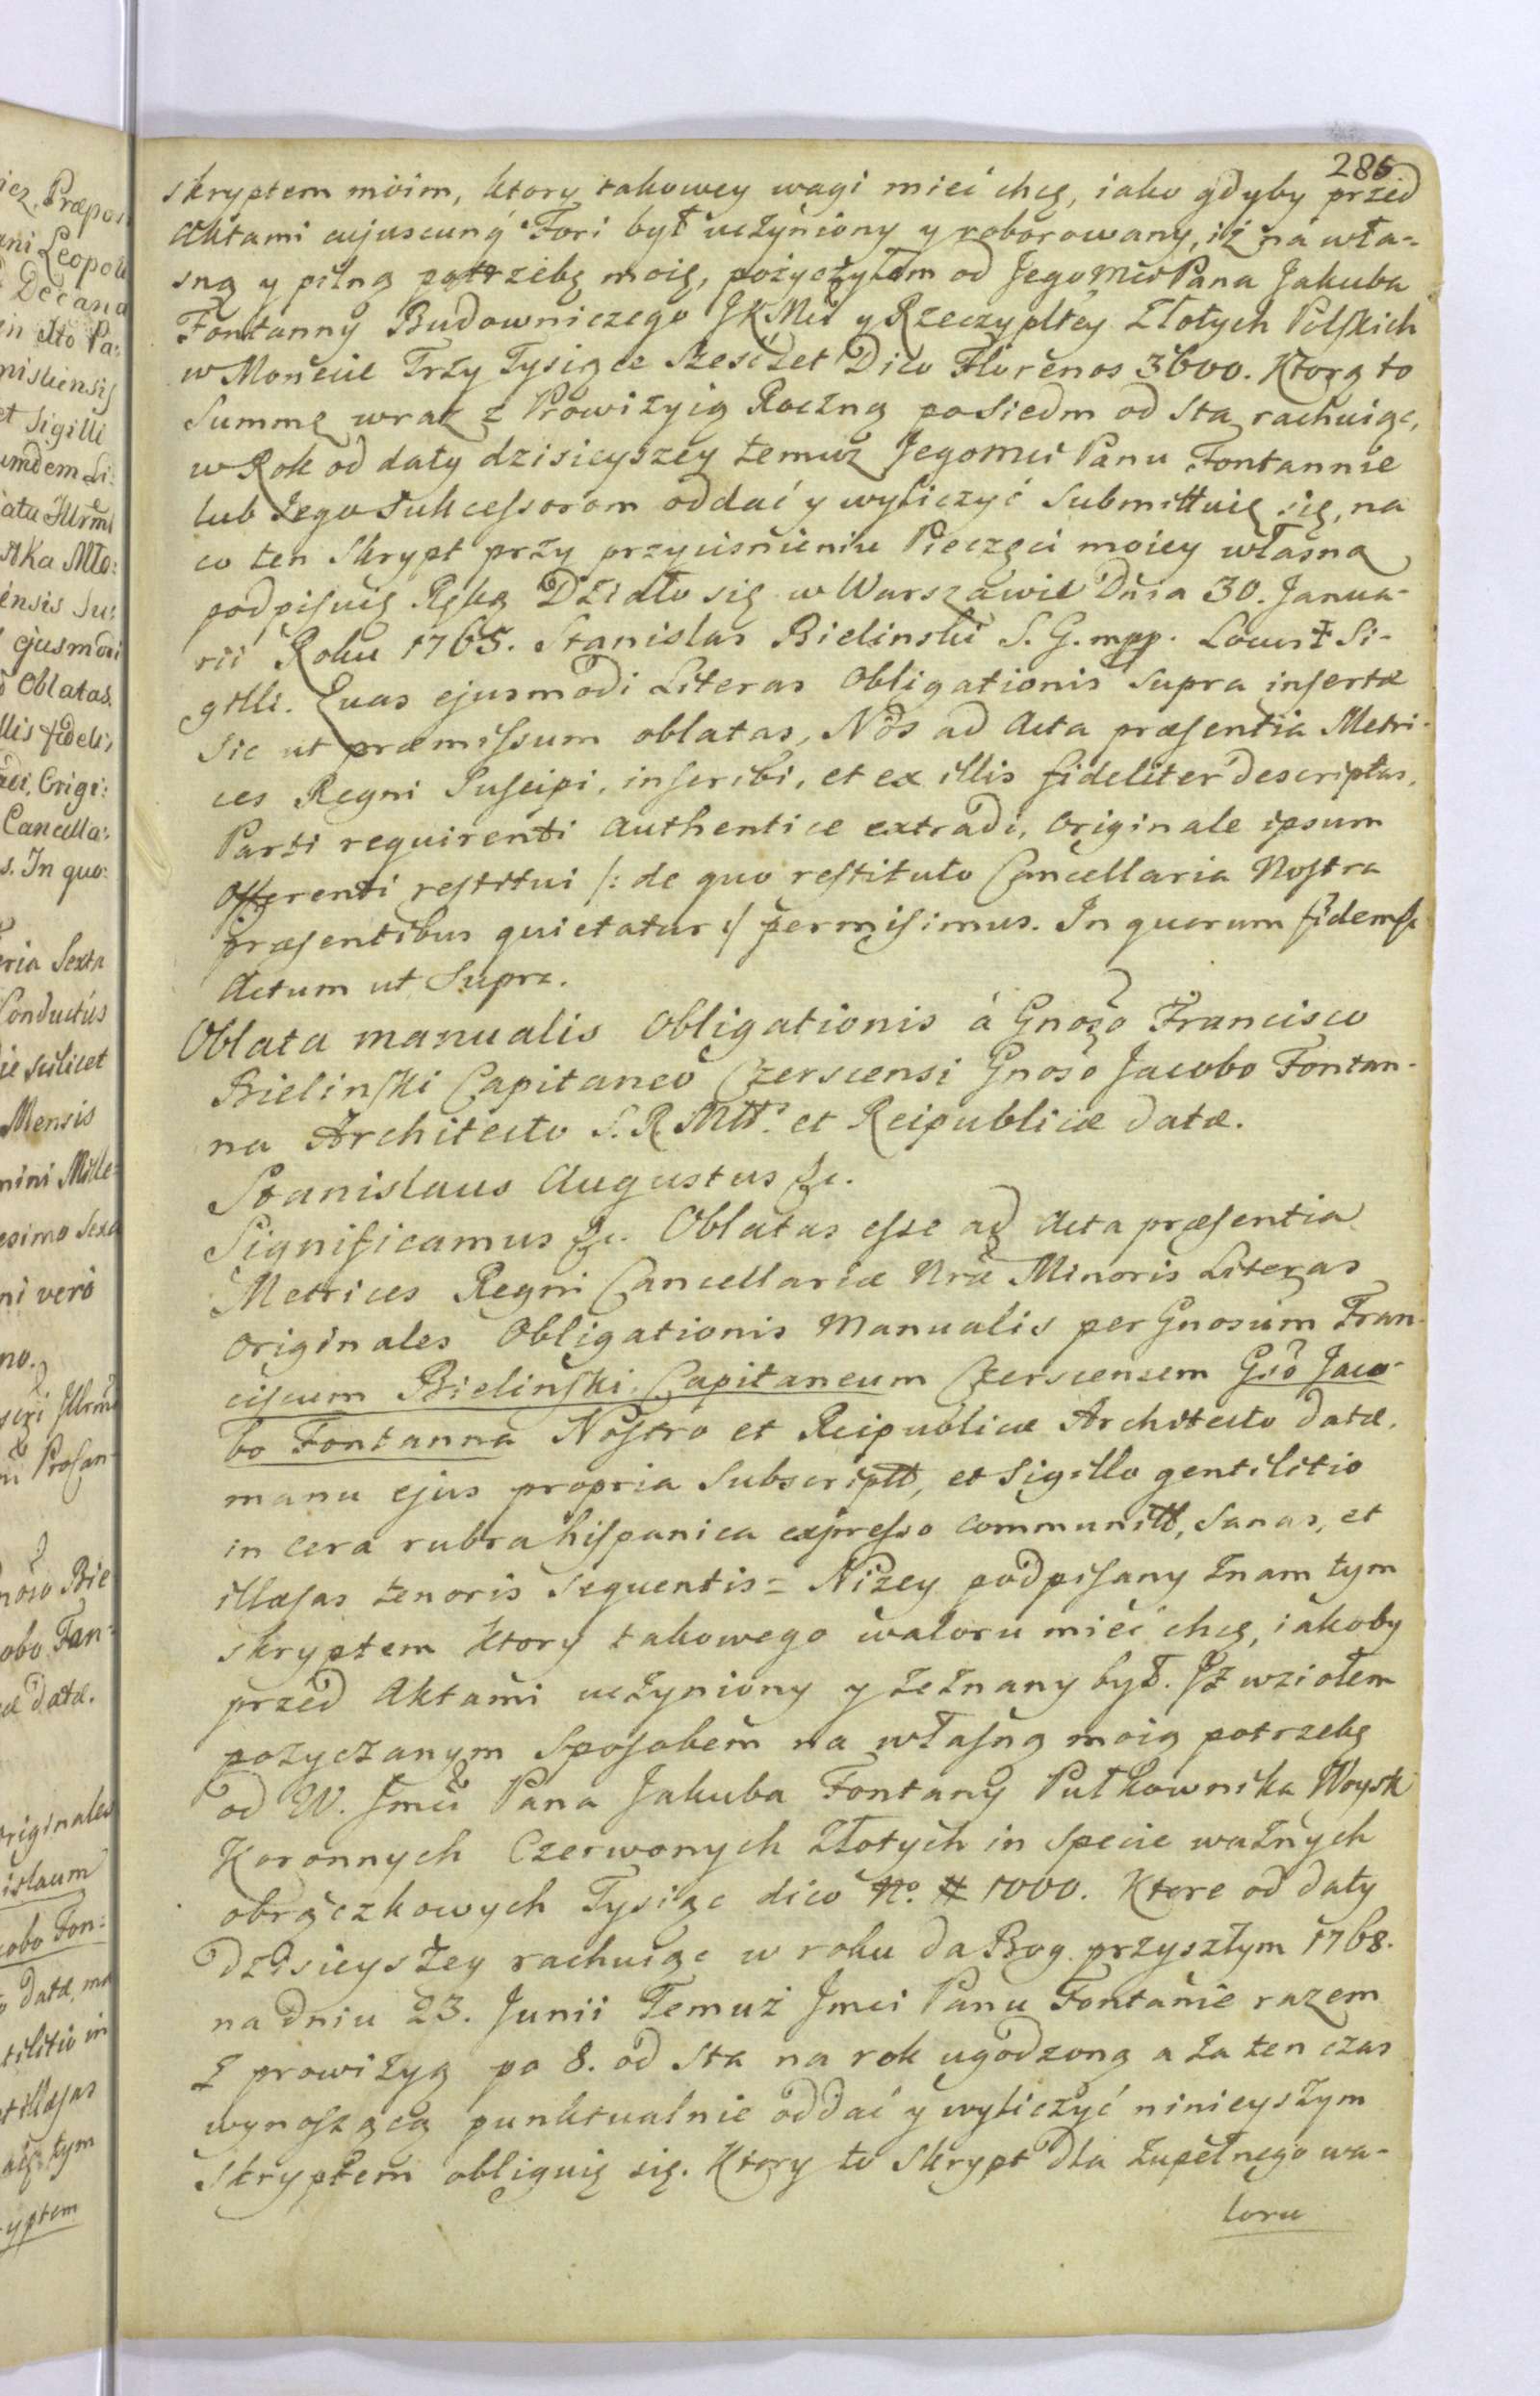 285
skryptem moim, ktory takowey wagi mieć chcę, iako gdyby przed
Aktami cujuscunq Fori był uczyniony y roborowany, iż na wła-
sną y pilną potrzebę moię, pożyczyłem od Jegomći Pana Jakuba
Fontanny Budowniczego JKMći y Rzeczypltey Złotych Polskich
w Monecie Trzy Tysiące Szesćset Dico Florenos 3600. Ktorą to
Summę wraz z Prowizyią Roczną po Siedm od Sta rachuiąc,
w Rok od daty dzisieyszey temuż Jegomći Panu Fontannie
lub Jego Sukcessorom oddać y wyliczyć Submittuię się, na
co ten Skrypt przy przycisnieniu Pieczęci moiey własną
podpisuię Ręką Działo się w Warszawie Dnia 30. Janua-
rii Roku 1765. Stanislas Bielinski S. G. mpp. Locus Si-
gilli. Quas ejusmodi Literas Obligationis supra insertæ
sic ut præmissum oblatas, Nos ad Acta præsentia Metri-
ces Regni Suscipi, inscribi, et ex illis fideliter descriptas,
Parti requirenti Authentice extradi, originale ipsum
Offerenti restitui /: de quo restituto Cancellaria Nostra
præsentibus quietatur :/ permisimus. In quorum fidem &c
Actum ut Supra.
Oblata manualis Obligationis à Gnoso Francisco
Bielinski Capitaneo Czerscensi Gnoso Jacobo Fontan-
na Architecto S. R. Mtt. et Reipublicæ datæ.
Stanislaus Augustus &c.
Significamus &c. Oblatas esse ad Acta præsentia
Metrices Regni Cancellariæ Nræ Minoris Literas
Originales Obligationis Manualis per Gnosum Fran-
ciscum Bielinski Capitaneum Czerscensem Gso Jaco-
bo Fontanna Nostro et Reipublicæ Architecto datæ,
manu ejus propria Subscriptt, et Sigillo gentilitio
in cera rubra hispanica expresso communitt, sanas, et
illæsas tenoris sequentis = Niżey podpisany znam tym
skryptem ktory takowego waloru mieć chcę, iakoby
przed Aktami uczyniony y zeznany był. Iż wziołem
pożyczanym Sposobem na własną moią potrzebę
od W. Jmći Pana Jakuba Fontany Pułkownika Woysk
Koronnych Czerwonych Złotych in Specie ważnych
obrączkowych Tysiąc dico No. # 1000. Ktore od daty
Dzisieyszey rachuiąc w roku da Bog przyszłym 1768.
na dniu 23. Junii Temuż Jmci Panu Fontanie razem
z prowizyą po 8. od Sta na rok ugodzoną a za ten czas
wynoszącą punktualnie oddać y wyliczyć ninieyszym
Skryptem obliguię się. Ktory to Skrypt dla zupełnego wa-
loru